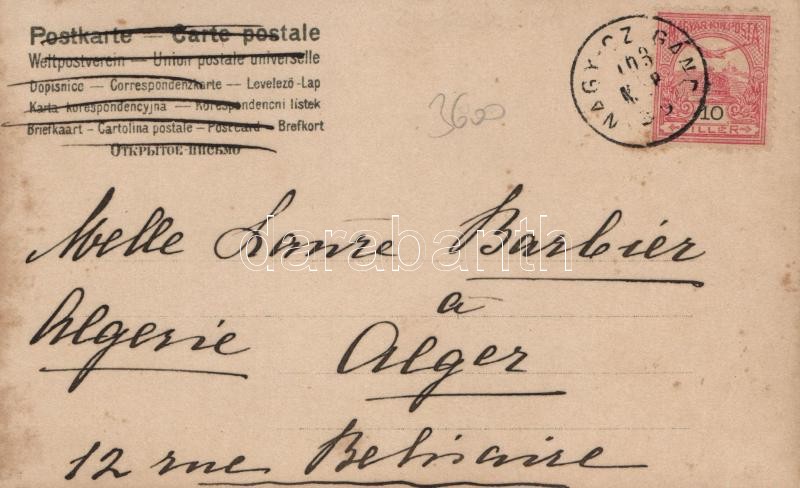 Postkarte — Carte postale
Weltpostverein — Union postale universelle
Dopisnice — Correspondenzkarte — Levelező-Lap
Karta korespondencyjna — Korespondencni listek
Briefkaart — Cartolina postale — Postcard — Brefkort
Открытое письмо
3600
NAGY-CZ GANCZ
MAGYAR KIR. POSTA
10
FILLER
Melle Laure Barbier
darabanth
à
Algerie Alger
12 rue Belisaire